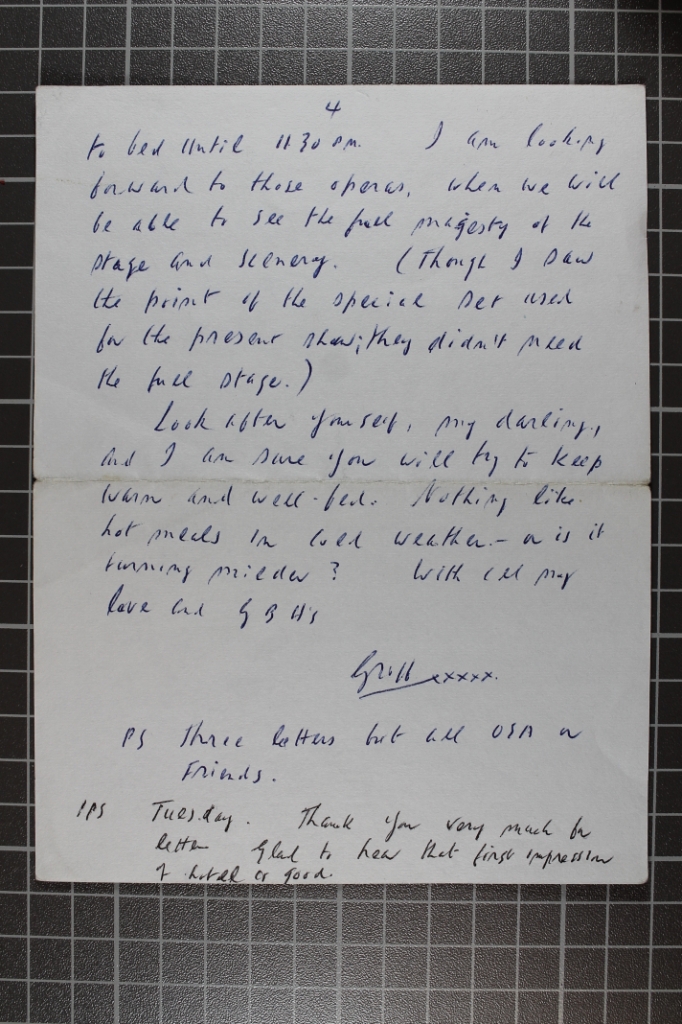 4
to bed until 11 30 pm. I am looking
forward to those operas, when we will
be able to see the full majesty of the
stage and scenery. (Though I saw
the point of the special set used
for the present show; they didn't need
the full stage.)
Look after yourself, my darling,
and I am sure you will try to keep
warm and well-fed. Nothing like
hot meals in cold weather - or is it
turning milder? With all my
love and G B H's
Griff xxxxx.
PS Three letters but all OSA or
Friends.
PPS Tuesday. Thank you very much for
letter. Glad to hear that first impression
of hotel is good.